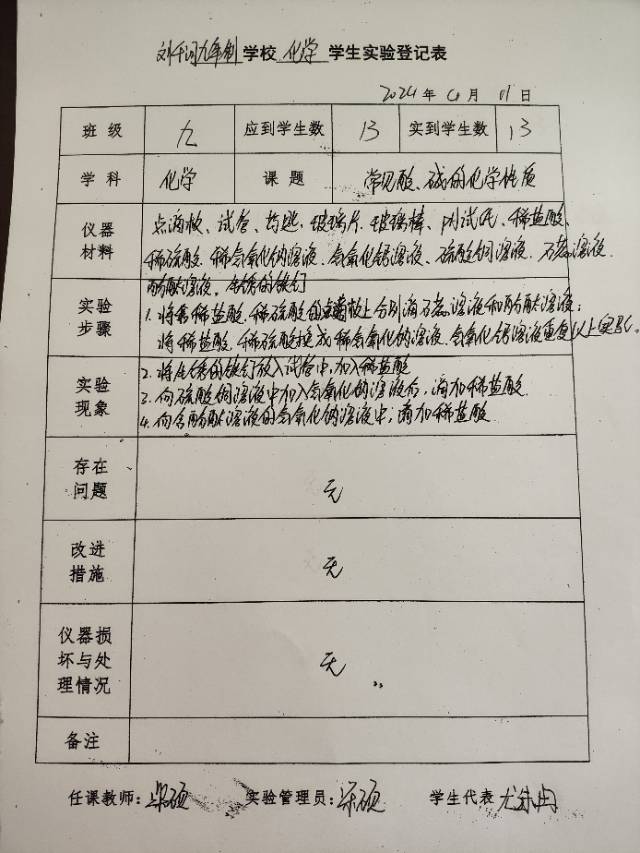 九年制学校 化学 学生实验登记表
2024年4月01日
班级 九 应到学生数 13 实到学生数 13
学科 化学 课题 常见酸、碱的化学性质
仪器材料 点滴板、试管、药匙、玻璃片、玻璃棒、pH试纸、稀盐酸、
稀硫酸、稀氢氧化钠溶液、氢氧化钙溶液、硫酸铜溶液、石蕊溶液、
酚酞溶液、生锈的铁钉
实验步骤 1.将稀盐酸、稀硫酸的点滴板上分别滴石蕊溶液和酚酞溶液；
将稀盐酸、稀硫酸换成稀氢氧化钠溶液、氢氧化钙溶液重复以上实验。
实验现象 2.将生锈的铁钉放入试管中，加入稀盐酸
3.向硫酸铜溶液中加入氢氧化钠溶液后，滴加稀盐酸
4.向含酚酞溶液的氢氧化钠溶液中，滴加稀盐酸
存在问题 无
改进措施 无
仪器损坏与处理情况 无
备注
任课教师：梁硕 实验管理员：梁硕 学生代表